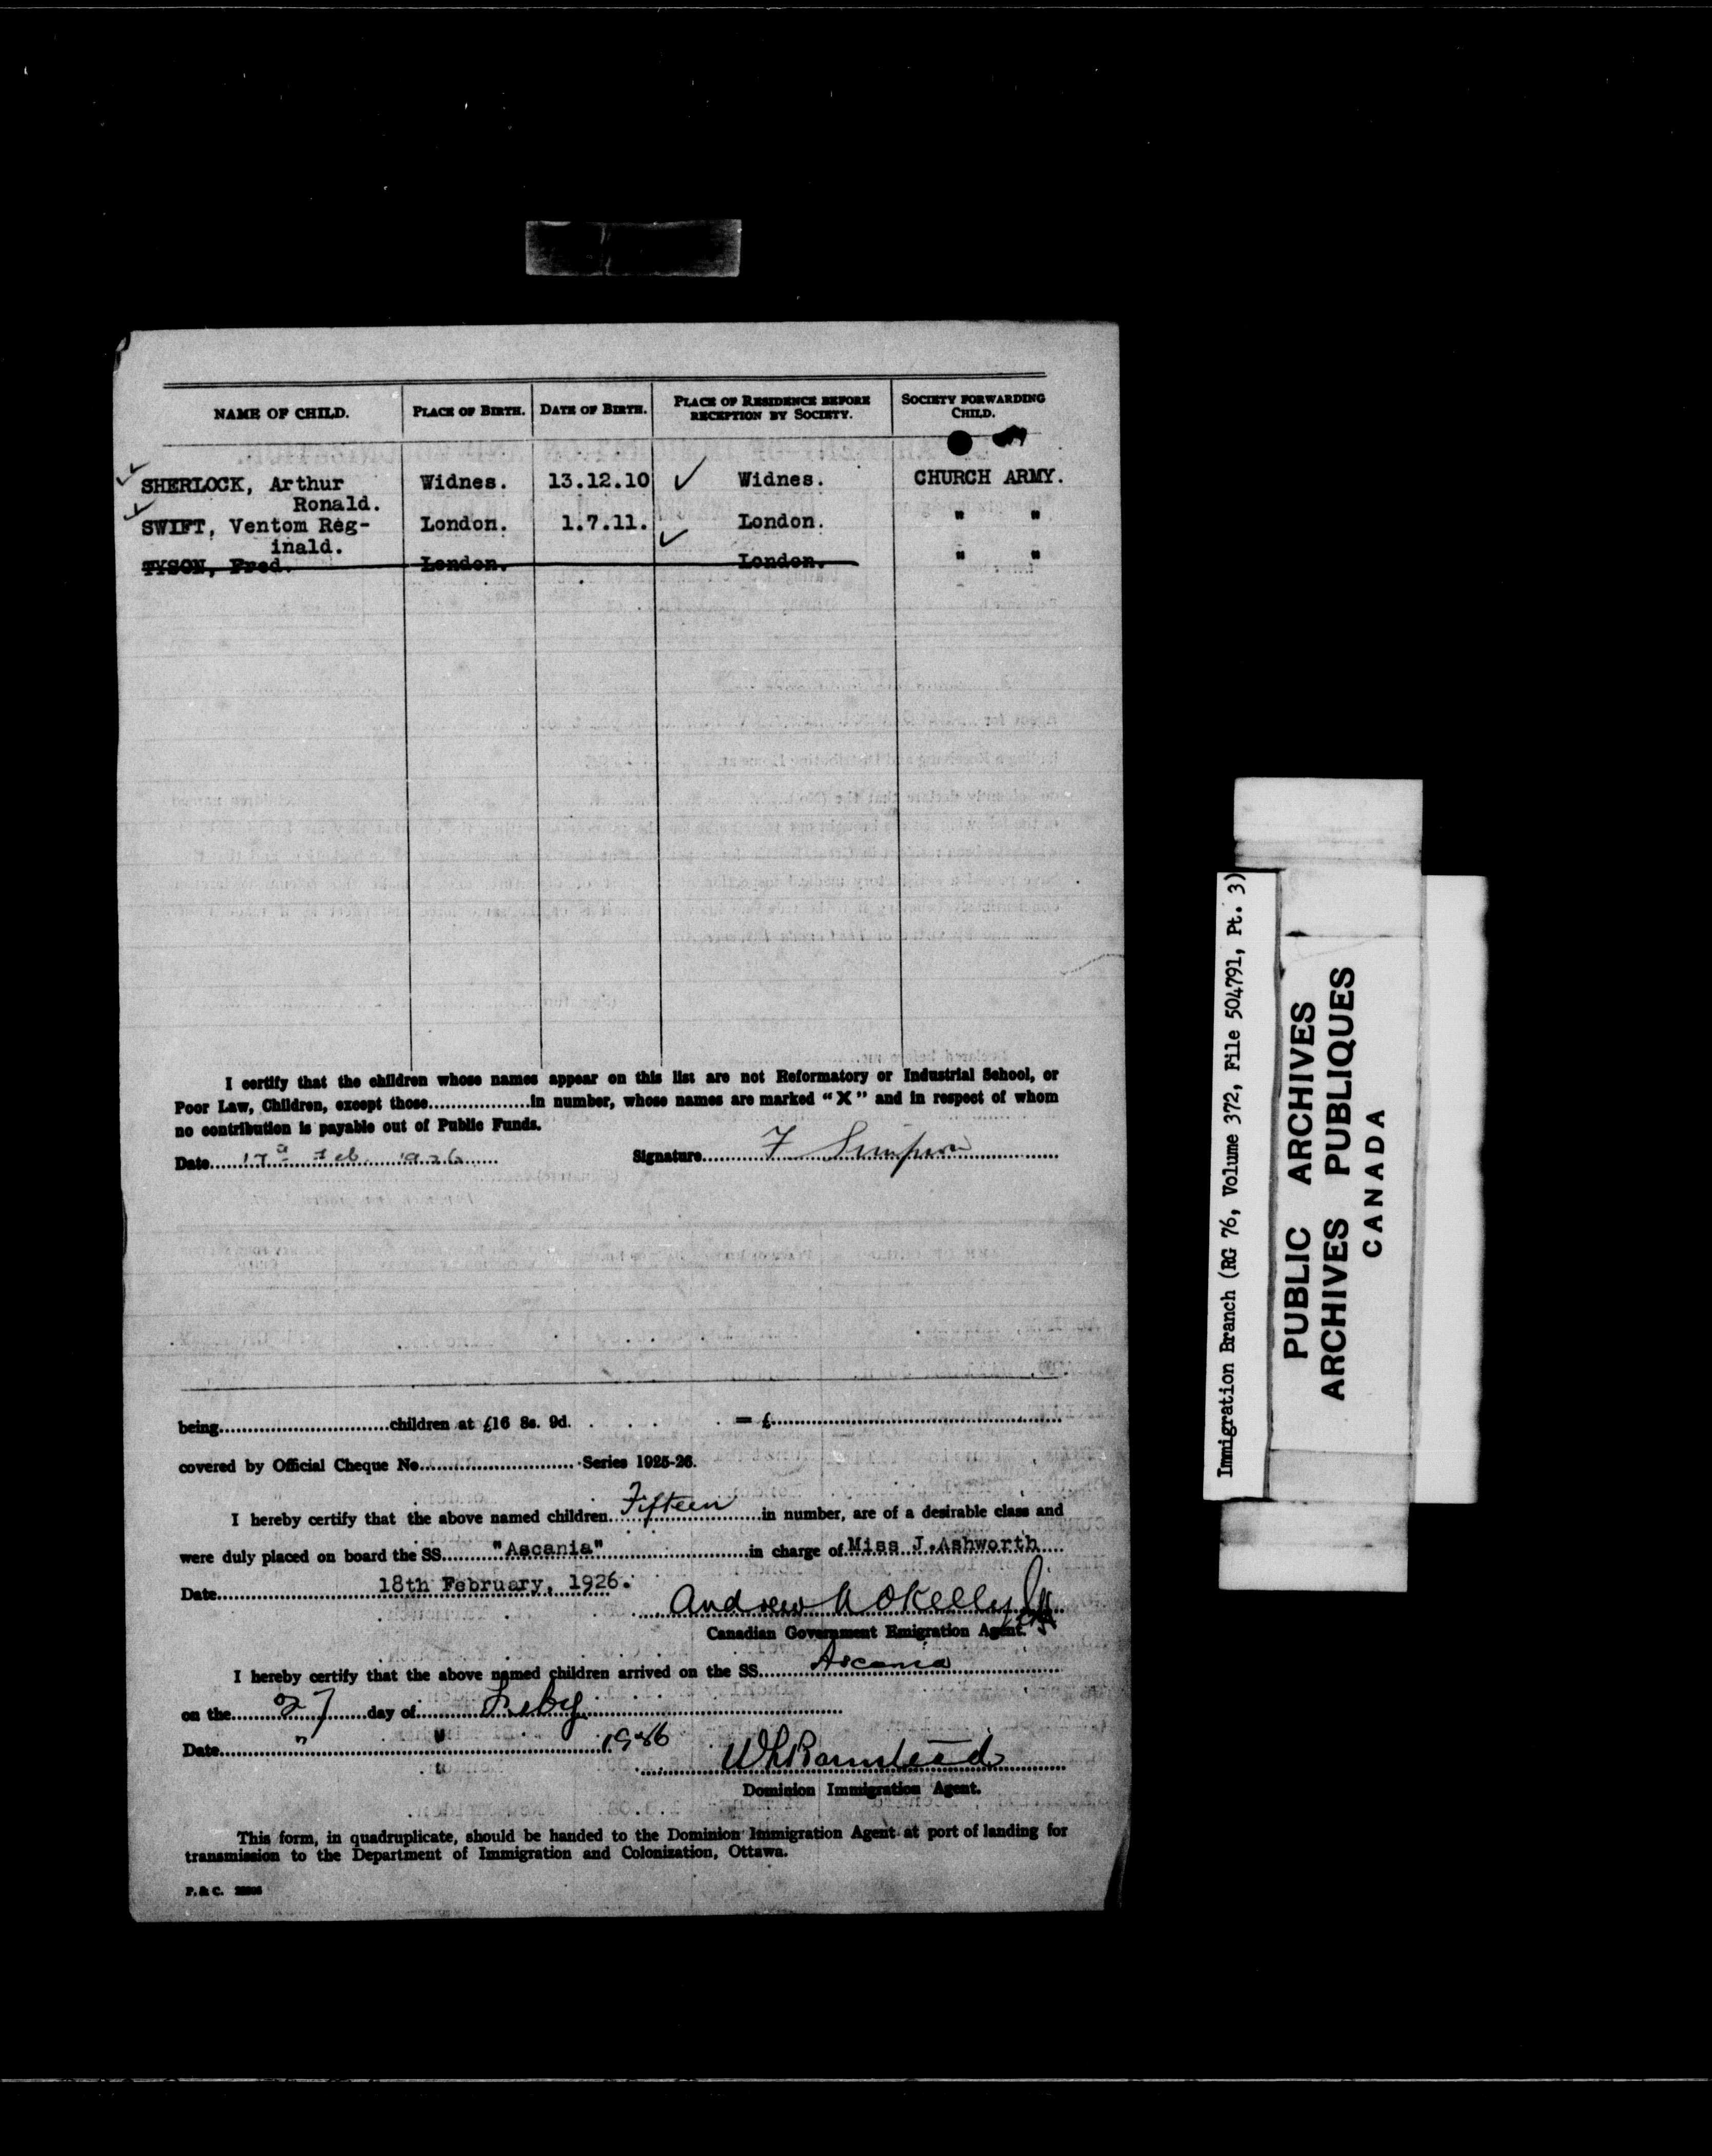 NAME OF CHILD. PLACE OF BIRTH. DATE OF BIRTH. PLACE OF RESIDENCE BEFORE RECEPTION BY SOCIETY. SOCIETY FORWARDING CHILD.
SHERLOCK, Arthur Widnes. 13.12.10 Widnes. CHURCH ARMY.
Ronald.
SWIFT, Ventom Reg- London. 1.7.11. London. " "
inald.
TYSON, Fred. London. London. " "
I certify that the children whose names appear on this list are not Reformatory or Industrial School, or
Poor Law, Children, except those..................in number, whose names are marked "X" and in respect of whom
no contribution is payable out of Public Funds.
Date 17th Feb. 1926 Signature F Simpson
being..............................children at £16 8s. 9d. . . . . = £
covered by Official Cheque No............................Series 1925-26.
I hereby certify that the above named children Fifteen in number, are of a desirable class and
were duly placed on board the SS. "Ascania" in charge of Miss J. Ashworth
Date 18th February, 1926.
Andrew OKelly
Canadian Government Emigration Agent.
I hereby certify that the above named children arrived on the SS. Ascania
on the 27 day of Feby.
Date " " 1926
Dominion Immigration Agent.
This form, in quadruplicate, should be handed to the Dominion Immigration Agent at port of landing for
transmission to the Department of Immigration and Colonization, Ottawa.
P. & C.
Immigration Branch (RG 76, Volume 372, File 504791, Pt. 3)
PUBLIC ARCHIVES
ARCHIVES PUBLIQUES
CANADA